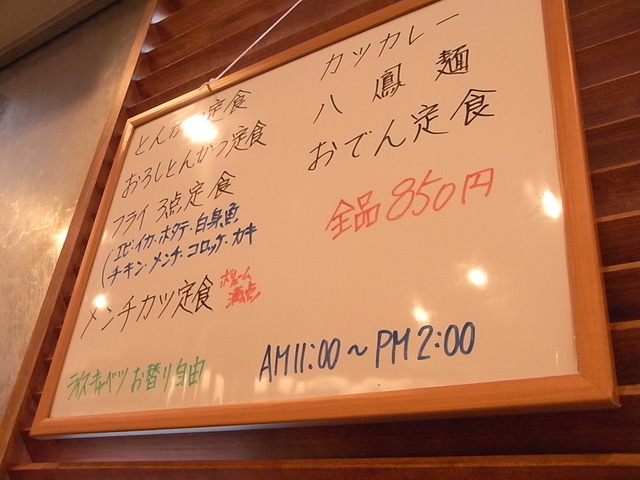 とんかつ定食
おろしとんかつ定食
フライ3点定食
(エビ・イカ・ホタテ・白身魚
チキン・メンチ・コロッケ・カキ
メンチカツ定食
ボリューム
満点
ライス・キャベツお替り自由
カツカレー
八鳳麺
おでん定食
全品850円
AM11:00〜PM2:00